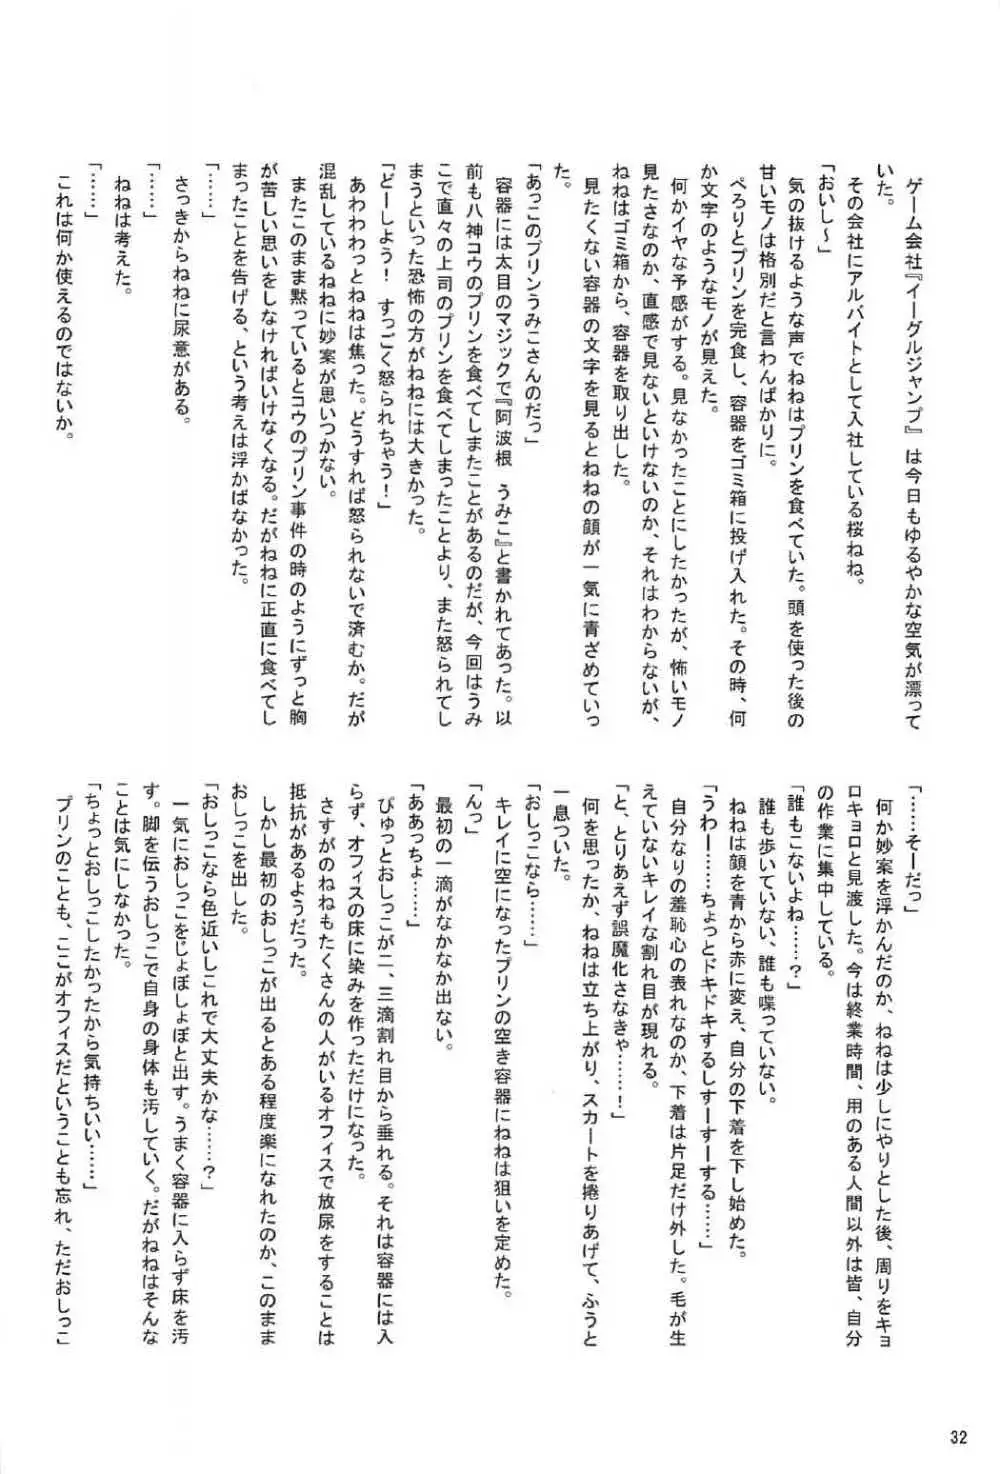 ゲーム会社『イーグルジャンプ』は今日もゆるやかな空気が漂って
いた。
その会社にアルバイトとして入社している桜ねね。
「おいし～」
気の抜けるような声でねねはプリンを食べていた。頭を使った後の
甘いモノは格別だと言わんばかりに。
ぺろりとプリンを完食し、容器をゴミ箱に投げ入れた。その時、何
か文字のようなモノが見えた。
何かイヤな予感がする。見なかったことにしたかったが、怖いモノ
見たさなのか、直感で見ないといけないのか、それはわからないが、
ねねはゴミ箱から、容器を取り出した。
見たくない容器の文字を見るとねねの顔が一気に青ざめていっ
た。
「あっこのプリンうみこさんのだっ」
容器には太目のマジックで『阿波根 うみこ』と書かれてあった。以
前も八神コウのプリンを食べてしまたことがあるのだが、今回はうみ
こで直々の上司のプリンを食べてしまったことより、また怒られてし
まうといった恐怖の方がねねには大きかった。
「どーしよう！ すっごく怒られちゃう！」
あわわわっとねねは焦った。どうすれば怒られないで済むか。だが
混乱しているねねに妙案が思いつかない。
またこのまま黙っているとコウのプリン事件の時のようにずっと胸
が苦しい思いをしなければいけなくなる。だがねねに正直に食べてし
まったことを告げる、という考えは浮かばなかった。
「……」
さっきからねねに尿意がある。
「……」
ねねは考えた。
「……」
これは何か使えるのではないか。
「……そーだっ」
何か妙案を浮かんだのか、ねねは少しにやりとした後、周りをキョ
ロキョロと見渡した。今は終業時間、用のある人間以外は皆、自分
の作業に集中している。
「誰もこないよね……？」
誰も歩いていない、誰も喋っていない。
ねねは顔を青から赤に変え、自分の下着を下し始めた。
「うわー……ちょっとドキドキするしすーすーする……」
自分なりの羞恥心の表れなのか、下着は片足だけ外した。毛が生
えていないキレイな割れ目が現れる。
「と、とりあえず誤魔化さなきゃ……！」
何を思ったか、ねねは立ち上がり、スカートを捲りあげて、ふうと
一息ついた。
「おしっこなら……」
キレイに空になったプリンの空き容器にねねは狙いを定めた。
「んっ」
最初の一滴がなかなか出ない。
「ああっちょ……」
ぴゅっとおしっこが二、三滴割れ目から垂れる。それは容器には入
らず、オフィスの床に染みを作っただけになった。
さすがのねねもたくさんの人がいるオフィスで放尿をすることは
抵抗があるようだった。
しかし最初のおしっこが出るとある程度楽になれたのか、このまま
おしっこを出した。
「おしっこなら色近いしこれで大丈夫かな……？」
一気におしっこをじょぼしょぼと出す。うまく容器に入らず床を汚
す。脚を伝うおしっこで自身の身体も汚していく。だがねねはそんな
ことは気にしなかった。
「ちょっとおしっこしたかったから気持ちいい……」
プリンのことも、ここがオフィスだということも忘れ、ただおしっこ
32